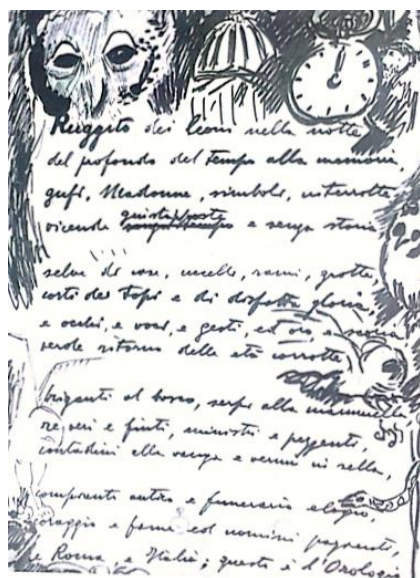 Ruggito dei leoni nella notte
dal profondo del tempo alla memoria,
gufi, Madonne, simboli, interrotte
vicende giustapposte e senza storia
selve di case, uccelli, rami, grotte,
corti dei topi e di disfatta gloria,
e occhi, e voci, e gesti, ed ori, e scoria
verde ritorno delle età corrotte,
briganti al bosco, serpi alla mammella
re veri e finti, ministri e pezzenti,
contadini alla vanga e vermi in sella,
antico e funerario elogio,
coraggio e fame ed uomini pazienti,
e Roma e Italia; questo è l'Orologio